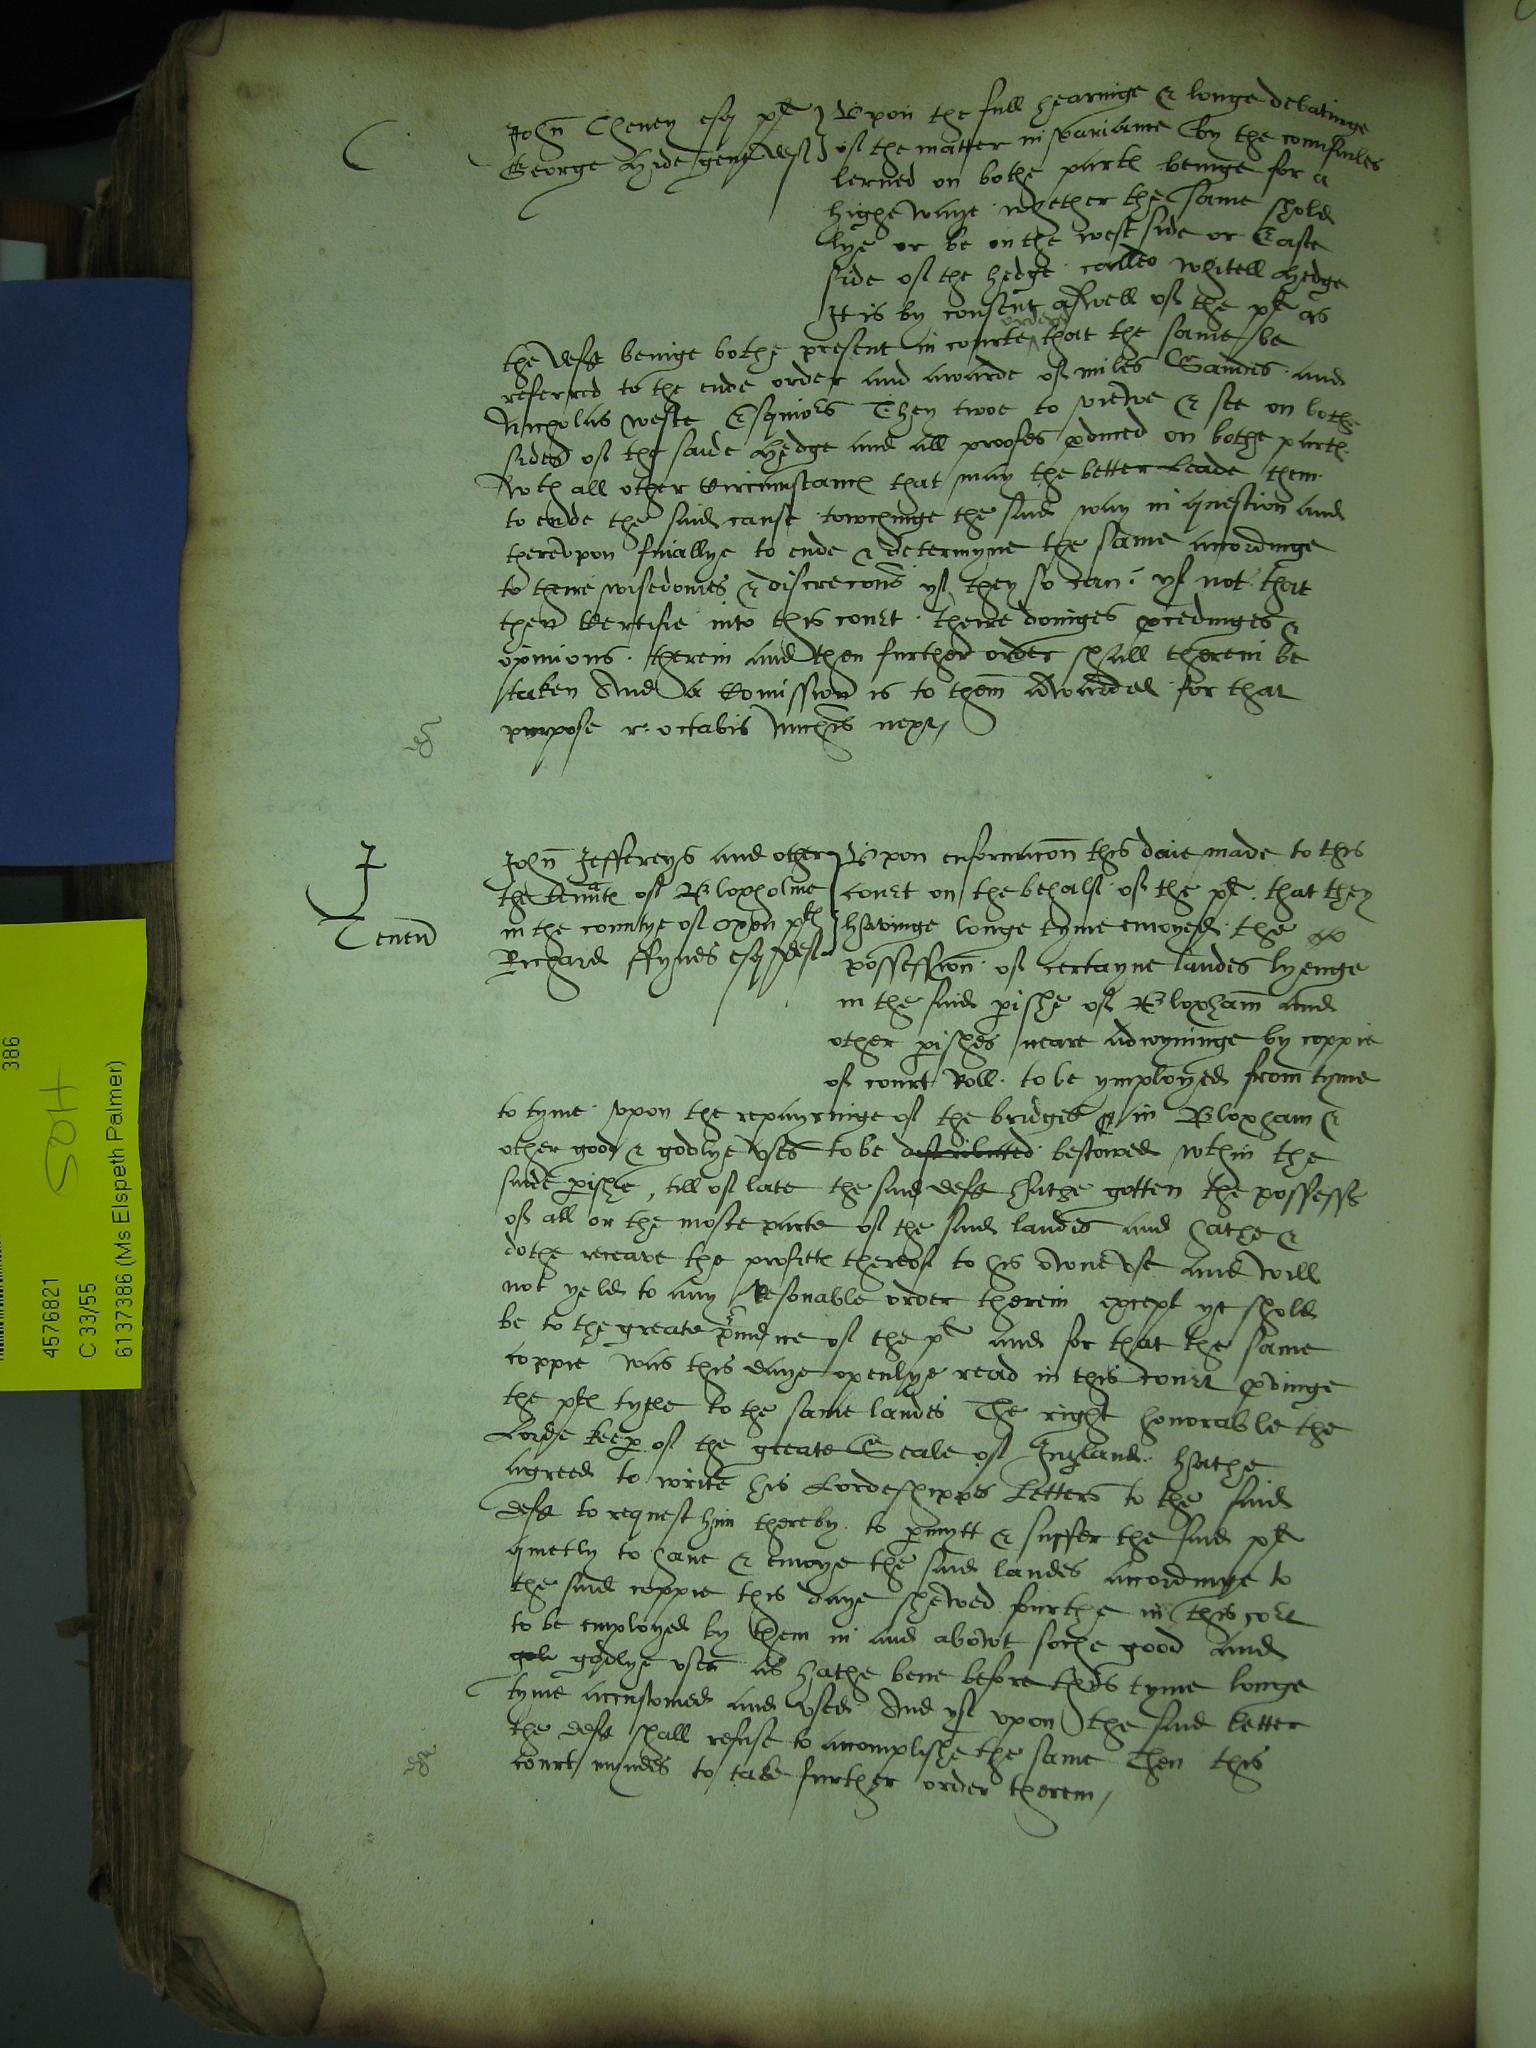 C
John Cheney esq pl
George Hide gent def
Upon the full hearinge & longe debatinge
of the matter in variaunce by the counsailes
lerned on bothe part beinge for a
highe waye whether the same shold
lye or be on the west side or Easte
side of the hedge called Whitell hedge
It is by consent aswell of the pl as
the deft beinge bothe present in courte ordered that the same be
referred to the ende order and awarde of Miles Sandes and
Nicholas Weste Esquiors They twoe to viewe & see on bothe
sides of the saide hedge and all proofes pduced on bothe part
wth all other circumstanc that may the better leade them
to ende the said cause towchinge the said way in question and
therevpon finallye to ende & determyne the same accordinge
to theire wisedomes & discrecons yf they so can yf not that
then certifie into this court theire doinges pcedinges &
opinions therein and then further order shall therein be
taken And a Comission is to them awarded for that
purpose r octabis Michis next
J
Tenen
John Jeffereys and other
the tenants of Bloxholme
in the countye of Oxon pl
Richard Ffynes esq def
Upon enformacon this daie made to this
court on the behalf of the pl that they
havinge longe tyme enioyed the
possession of certayne landes lyenge
in the said pishe of Bloxham and
other pishes neare adioyninge by coppie
of court Roll to be ymployed from tyme
to tyme vpon the repayringe of the bridges in Bloxham &
other good & godlye vses to be distributed bestowed wthin the
saide pishe, till of late the said deft hathe gotten the possess
of all or the moste parte of the said landes and hathe &
dothe receave the profitt thereof to his owne vse and will
not yelde to any resonable order therein except yt shold
be to the greate piudice of the pl and for that the same
coppie was this daye openlye read in this court pvinge
the pl tytle to the same landes The right honorable the
Lorde keep of the greate Seale of England hathe
agreed to write his Lordeshippes Letters to the said
deft to request him thereby to pmytt & suffer the said pl
quietly to have & enioye the said landes accordinge to
the said coppie this daye shewed fourthe in this court
to be employed by them in and abowt soche good and
gole godlye vses as hathe bene before this tyme longe
tyme accustomed and vsed And yf vpon the said Letter
the deft shall refuse to accomplishe the same Then this
court myndes to take further order therein
386
SOH
4576821
C 33/55
6137386 (Ms Elspeth Palmer)